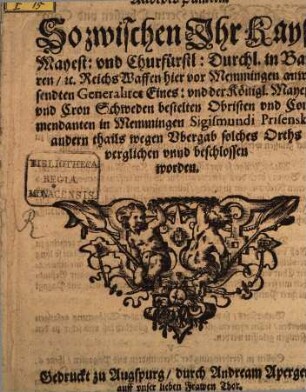 E 15
So zwischen Ihr Kays
Mayest: vnd Churfürstl: Durchl. in Ba
ren / ꝛc. Reichs Waffen hier vor Memmingen anw
sendten Generalitet Eines: vnd der Königl. Maye
vnd Cron Schweden bestelten Obristen vnd Com
mendanten in Memmingen Sigismundi Prisensk
andern thails wegen Vbergab solches Orths
verglichen vnnd beschlossen
worden.
BIBLIOTHECA
REGIA
MONACENSIS
R
Gedruckt zu Augspurg / durch Andream Aperge
auff vnser lieben Frawen Thor.